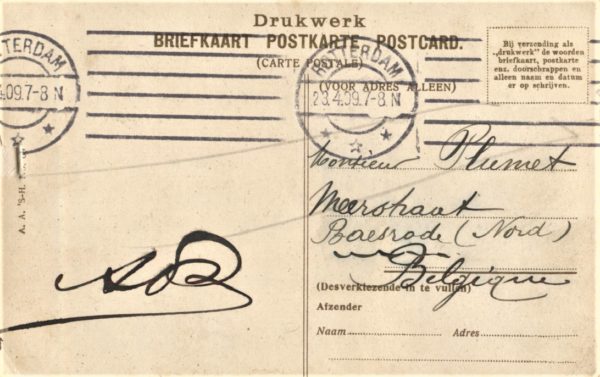 Drukwerk
BRIEFKAART POSTKARTE POSTCARD.
(CARTE POSTALE)
(VOOR ADRES ALLEEN)
Bij verzending als
„drukwerk" de woorden
briefkaart, postkarte
enz. doorschrappen en
alleen naam en datum
er op schrijven.
ROTTERDAM
4.09.7-8 N
ROTTERDAM
23.4.09.7-8 N
Monsieur Plumet
Meerstraat
Baesrode (Nord)
Belgique
(Desverkiezende in te vullen)
Afzender
Naam
Adres
A. A. 'S-H.